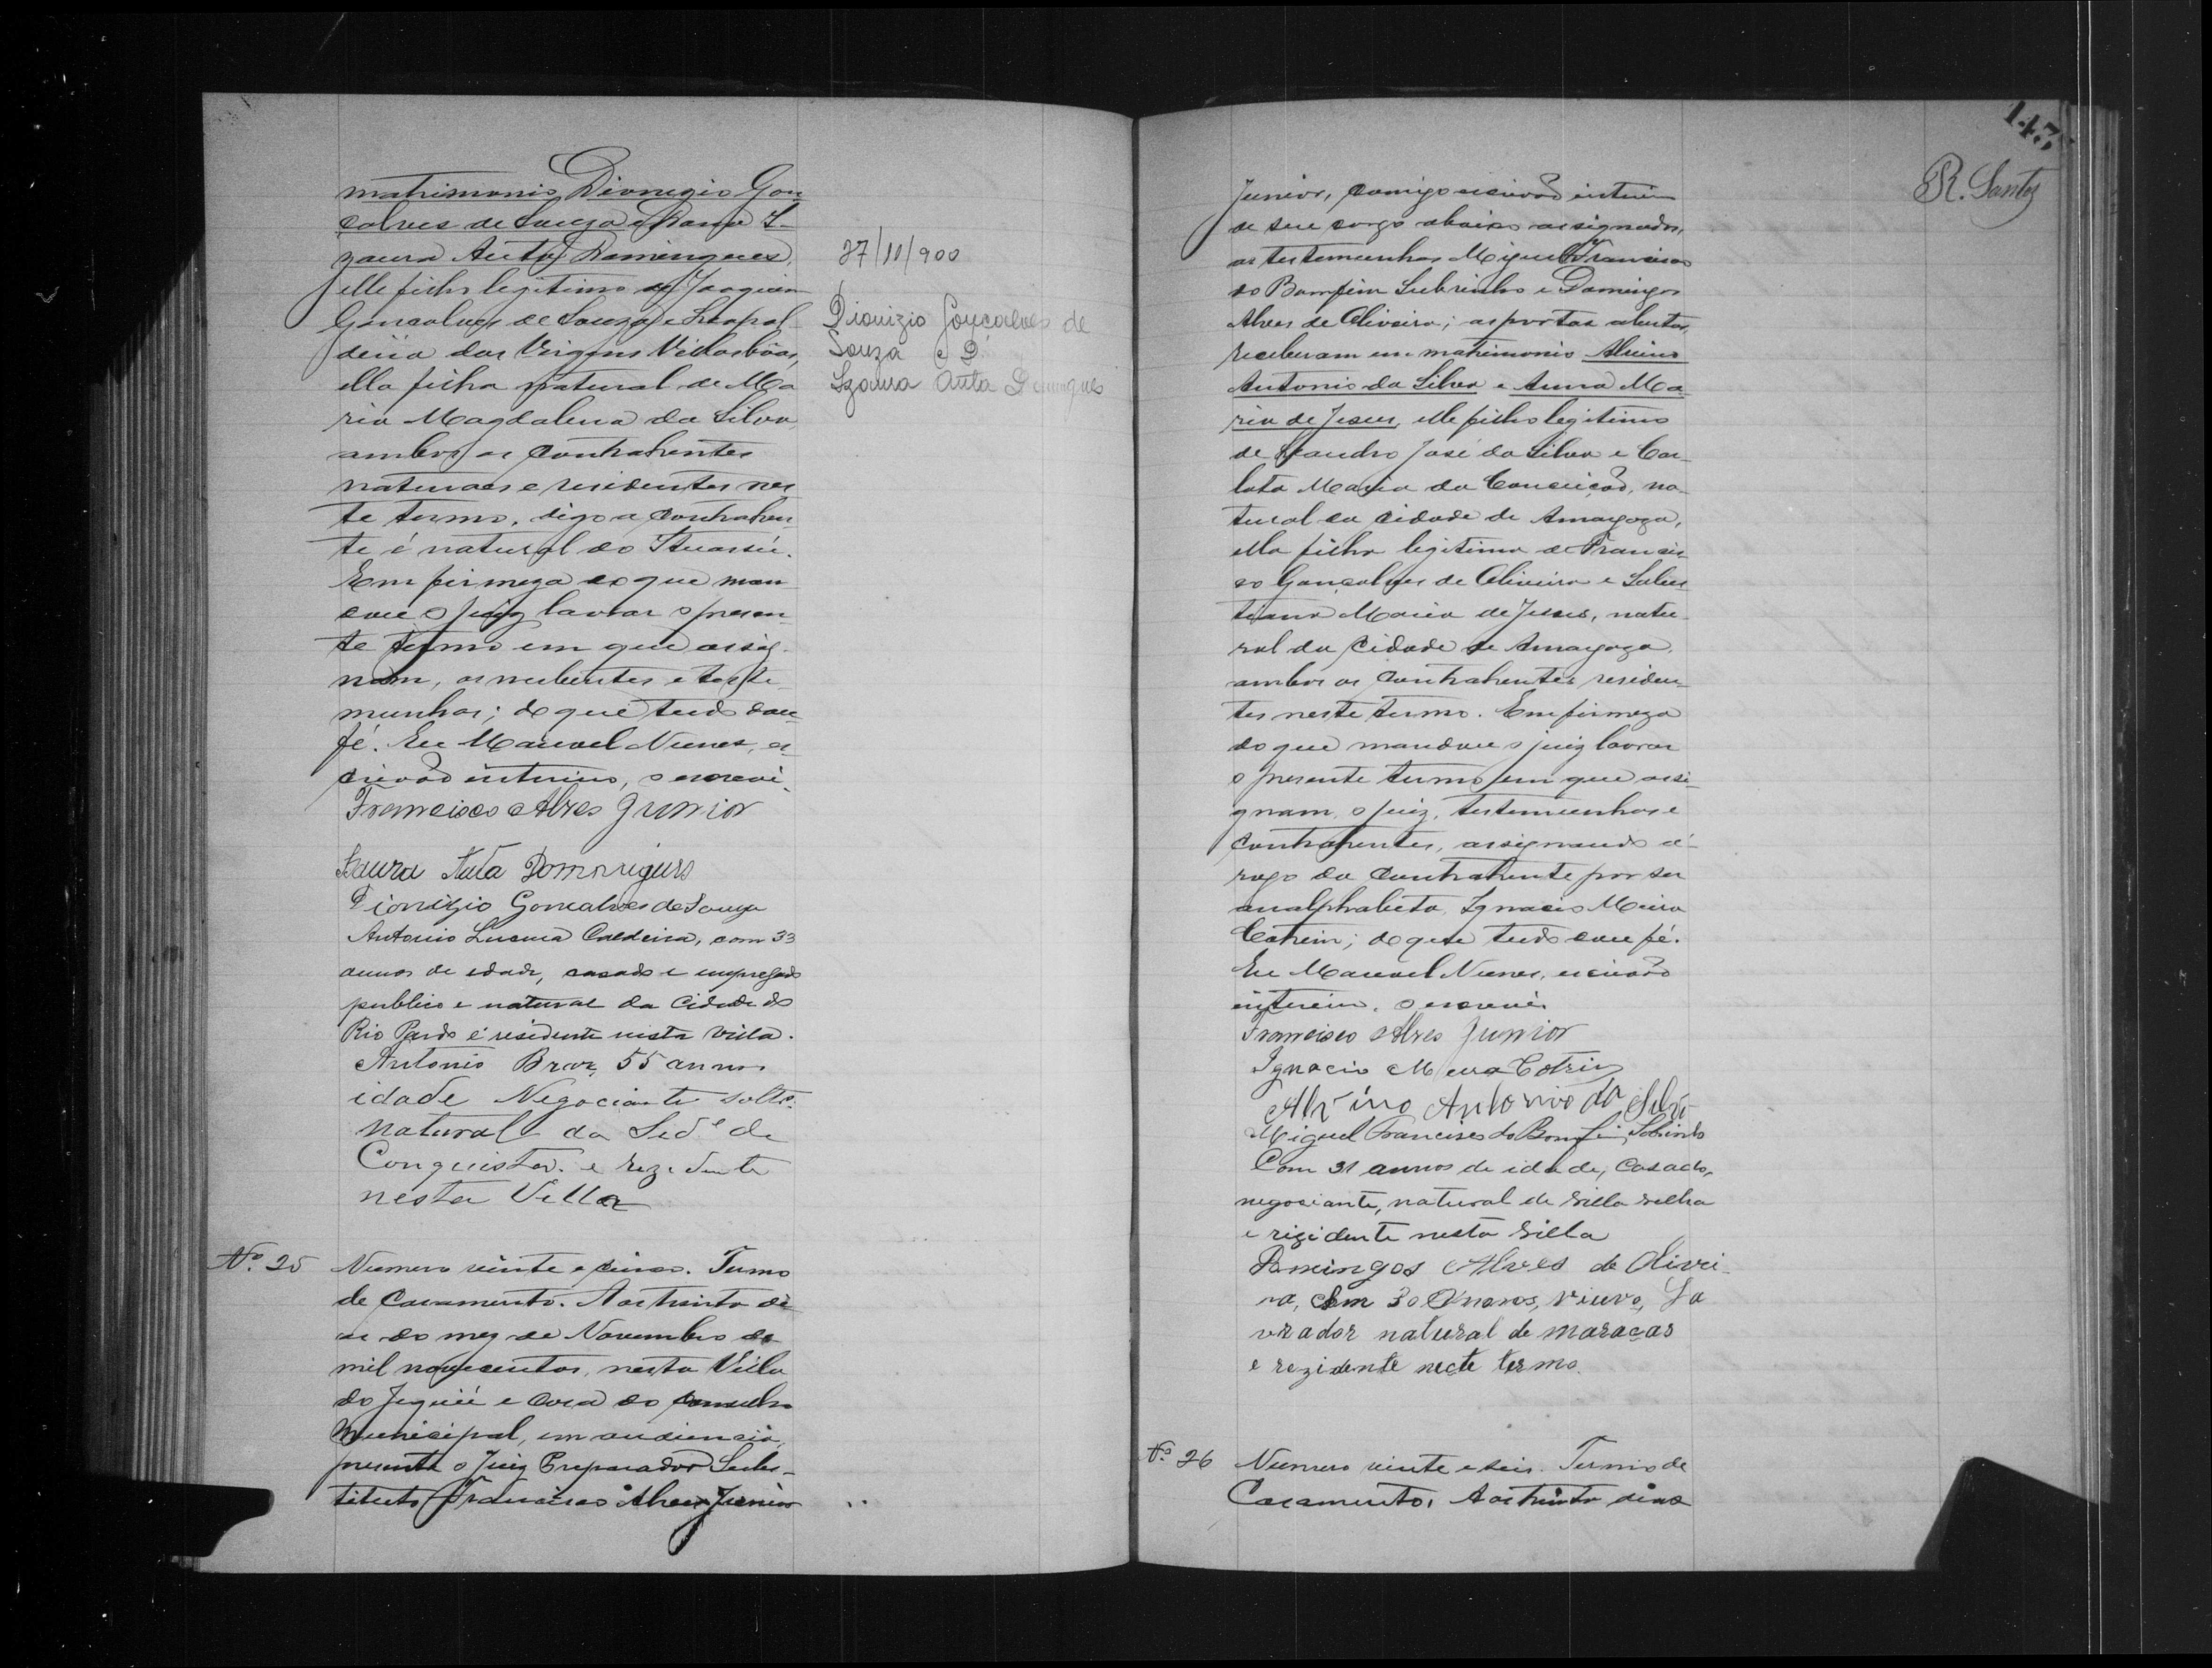 matrimonio Dionizio Gon
çalves de Souza e Dona I-
zaura Auta Domingues,
elle filho legitimo de Joaquim
Goncalves de Souza e Leopol-
dina das Virgens Villasbôas,
ella filha natural de Ma
ria Magdalena da Silva,
ambos os contrahentes
naturaes e residentes nes
te termo, digo a contrahen
te é natural do Ituassú.
Em firmeza do que man
dou o juiz lavrar o presen
te termo em que assig-
nam, os nubentes e teste
munhas; do que tudo dou
fé. Eu Manoel Nunes, es
crivão interino, o escrevi.
Francisco Alves Junior
Izaura Auta Domingues
Dionizio Goncalves de Souza
Antonio Lucena Caldeira, com 33
annos de edade, casado e empregado
publico e natural da Cidade do
Rio Pardo e residente nesta villa.
Antonio Braz, 55 annos
idade Negociante soltro
natural da Sedᵉ de
Conquista. e rezidente
nesta Villa
27/11/900
Dionizio Gonçalves de
Souza e D.
Izaura Auta Domingues
Nº. 25 Numero vinte e cinco. Termo
de Casamento. Aos trinta di
as do mez de Novembro de
mil novecentos, nesta Villa
do Jequié e casa do Conselho
Municipal, em audiencia,
presente o Juiz Preparador Subs-
tituto Francisco Alves Junior
147
R. Santos
Junior, comigo escrivão interin
de seu cargo abaixo assignado,
as testemunhas Miguel Francisco
do Bomfim Subrinho e Domingos
Alves de Oliveira; as portas abertas,
receberam em matrimonio Alvino
Antonio da Silva e Anna Ma
ria de Jesus, elle filho legitimo
de Leandro José da Silva e Car
lota Maria da Conceição, na
tural da cidade de Amargoza,
ella filha legitima de Francis
co Gonçalves de Oliveira e Salus
tiana Maria de Jesus, natu
ral da Cidade de Amargoza,
ambos os contrahentes residen
tes neste termo. Em firmeza
do que mandou o juiz lavrar
o presente termo em que assi
gnam, o juiz, testemunhas e
contrahentes, assignando á
rogo da contrahente por ser
analphabeta, Ignacio Meira
Cotrim; do que tudo dou fé.
Eu Manoel Nunes, escrivão
interin, o escrevi.
Francisco Alves Junior
Ignacio Meira Cotrim
Alvino Antonio da Silva
Miguel Francisco do Bomfim Sobrinho
Com 31 annos de idade, casado,
negociante, natural de villa velha
e rizidente nesta villa
Domingos Alves de Olivei-
ra, Com 30 Annos, viuvo, La
vrador natural de maracas
e rezidente necte termo.
Nº 26 Numero vinte e seis. Termo de
Casamento. Aos trinta dias